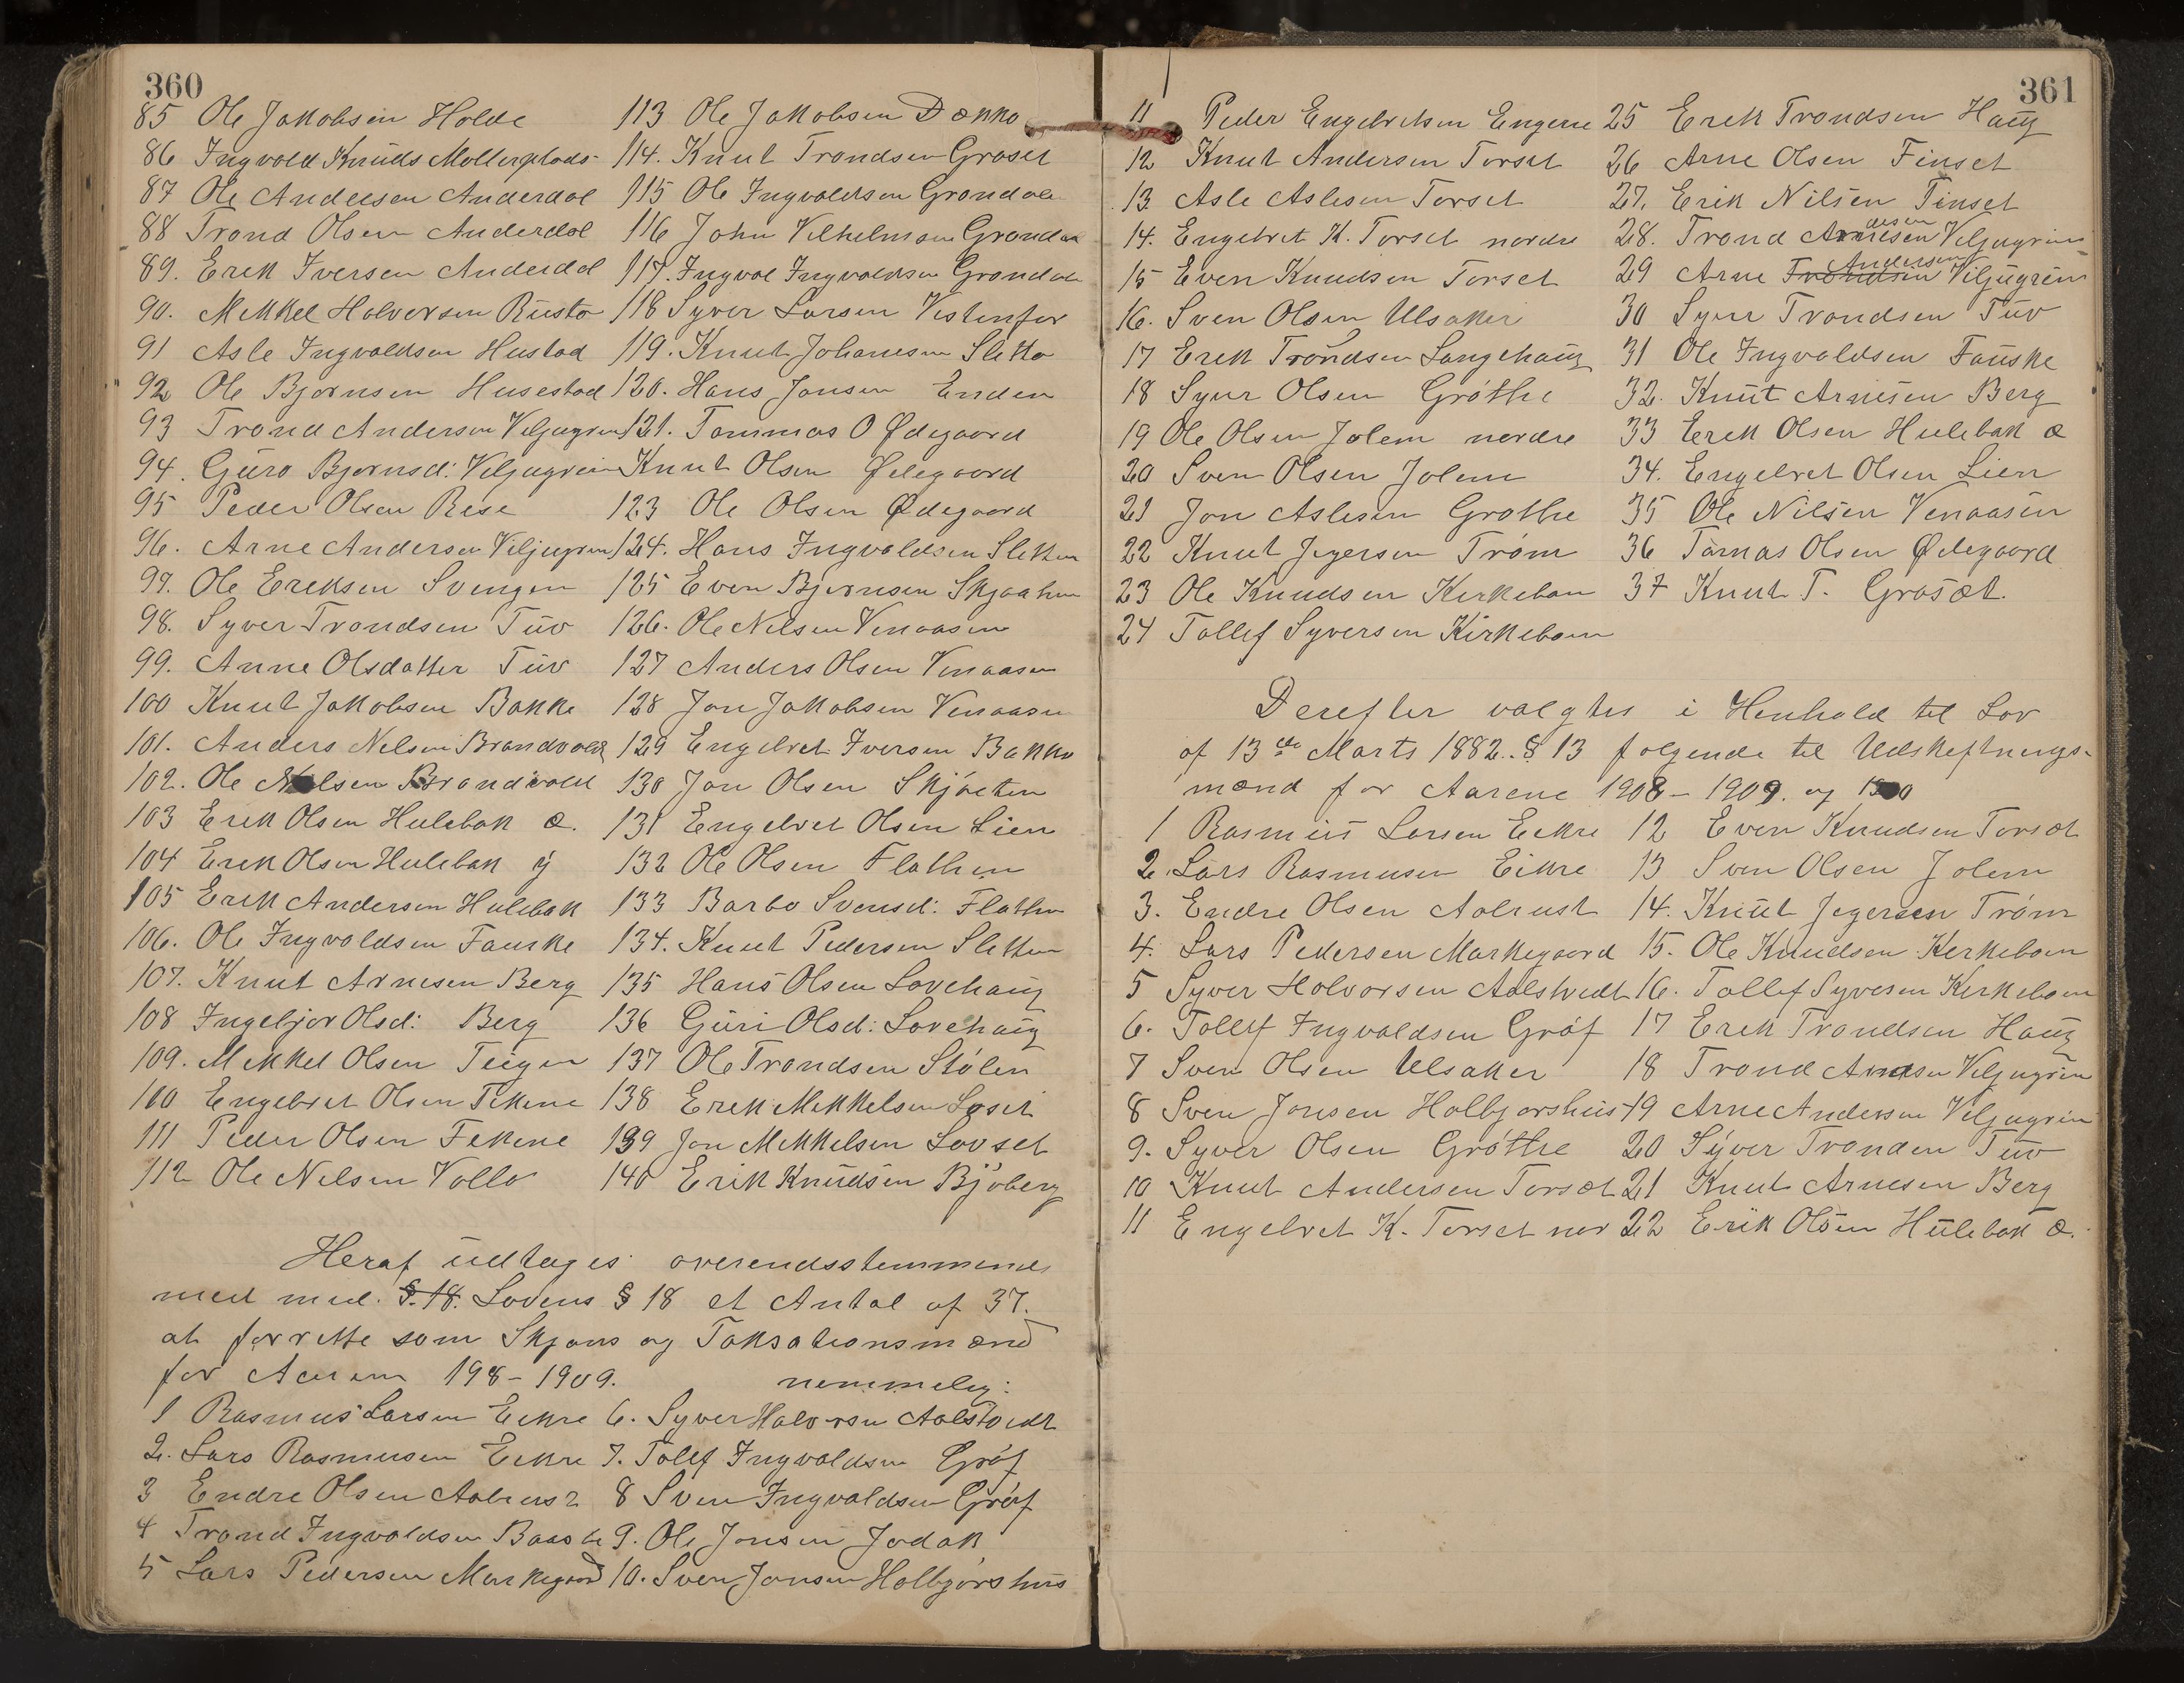 360
85 Ole Jakobsen Holde
86 Ingvald Knuds Mollerplads
87 Ole Andersen Anderdal
88 Trond Olsen Anderdal
89. Erik Iversen Anderdal
90. Mekkel Halvorsen Rusto
91 Asle Ingvaldsen Hustad
92 Ole Bjornsen Husestad
93 Trond Andersen Veljugrein
94. Guro Bjornsd: Veljugrein
95 Peder Olsen Rese
96. Arne Andersen Viljugrein
97. Ole Eriksen Svingen
98. Syver Trondsen Tuv
99. Anne Olsdatter Tuv
100 Knut Jakobsen Bakke
101. Anders Nelsen Brandvold
102. Ole Nelsen Brandvold
103 Erik Olsen Hulebak æ.
104 Erik Olsen Hulebak y
105 Erik Andersen Hulebak
106. Ole Ingvaldsen Fauske
107. Knut Arnesen Berg
108 Ingebjor Olsd: Berg
109. Mekkel Olsen Teigen
110 Engebret Olsen Tekene
111 Peder Olsen Fekene
112 Ole Nelsen Vollo
113 Ole Jakobsen Dokko
114. Knut Trondsen Groset
115 Ole Ingvaldsen Grondale
116 John Vilhelmsen Grondal
117. Ingval Ingvaldsen Grondale
118 Syver Larsen Vestenfor
119. Knut Johanesen Sletto
120. Hans Jonsen Enden
121. Tommas O Ødegaard
Knut Olsen Ødegaard
123 Ole Olsen Ødegaard
124. Hans Ingvaldsen Sletten
125 Even Bjornsen Skjaaten
126. Ole Nelsen Venaasen
127 Anders Olsen Venaasen
128 Jon Jakobsen Venaasen
129 Engebret Iversen Bakko
130 Jon Olsen Skjøeten
131 Engebret Olsen Lien
132 Ole Olsen Flathen
133 Barbo Svensd: Flathen
134. Knut Pedersen Sletten
135 Hans Olsen Lovehaug
136 Guri Olsd: Lovehaug
137 Ole Trondsen Stölen
138 Erik Mekkelsen Loset
139 Jon Mekkelsen Lovset
140 Erik Knudsen Bjöberg
Heraf udtoges overendsstemmende
med med. §. 18. Lovens § 18 et Antal af 37.
at forrette som Skjons og Taksationsmænd
for Aarene 198 - 1909. nemmelig:
1 Rasmus Larsen Eekre
2. Lars Rasmusen Eekre
3 Endre Olsen Aalrust
4 Trond Ingvaldsen
5 Lars Pedersen Markegaard
6. Syver Halvorsen Aalstvedt
7. Tolef Ingvaldsen Gröf
8 Sven Ingvaldsen Gröf
9. Ole Jonsen Jodak
10. Sven Jonsen Holbjörshus
361
11 Peder Engebretsen Engene
12 Knut Andersen Torset
13. Asle Aslesen Torset
14. Engebret K. Torset nordre
15 Even Knudsen Torset
16. Sven Olsen Ulsaker
17 Erik Tröndsen Langehaug
18 Syver Olsen Gröthe
19 Ole Olsen Jolem nordre
20 Sven Olsen Jolem
21 Jon Aslesen Grothe
22 Knut Jegersen Tröm
23 Ole Knudsen Kirkeboen
24 Tollef Syversen Kirkeboen
25 Erik Trondsen Haug
26 Arne Olsen Finset
27. Erik Nilsen Tinset
28. Trond Arnesen dersen Veljugrein
29 Arne Trondsen Andersen Viljugrein
30 Syver Trondsen Tuv
31 Ole Ingvaldsen Fauske
32. Knut Arnesen Berg
33 Erik Olsen Hulebak æ
34. Engebret Olsen Lien
35 Ole Nilsen Venaasen
36 Tomas Olsen Ødegaard
37 Knut T. Grosæt.
Derefter valgtes i Henhold til Lov
af 13de Marts 1882. § 13 folgende til Udskeftnings-
mænd for Aarene 1908 - 1909. og
1 Rasmus Larsen Eekre
2. Lars Rasmusen Eikre
3. Endre Olsen Aalrust
4. Lars Pedersen Markegaard
5 Syver Holvorsen Aalstvedt
6. Tollef Ingvaldsen Gröf
7 Sven Olsen Ulsaker
8 Sven Jonsen Holbjorshus
9. Syver Olsen Gröthe
10 Knut Andersen Torsæt
11 Engebret K. Torset nor
12 Even Knudsen Torsæt
13 Sven Olsen Jolem
14. Knut Jegersen Tröm
15. Ole Knudsen Kerkeboen
16. Tollef Syversen Kerkeboen
17 Erik Trondsen Haug
18 Trond Veljugrein
19 Arne Andersen Veljugrein
20 Syver Tronden Tuv
21 Knut Arnesen Berg
22 Erik Olsen Hulebak æ.